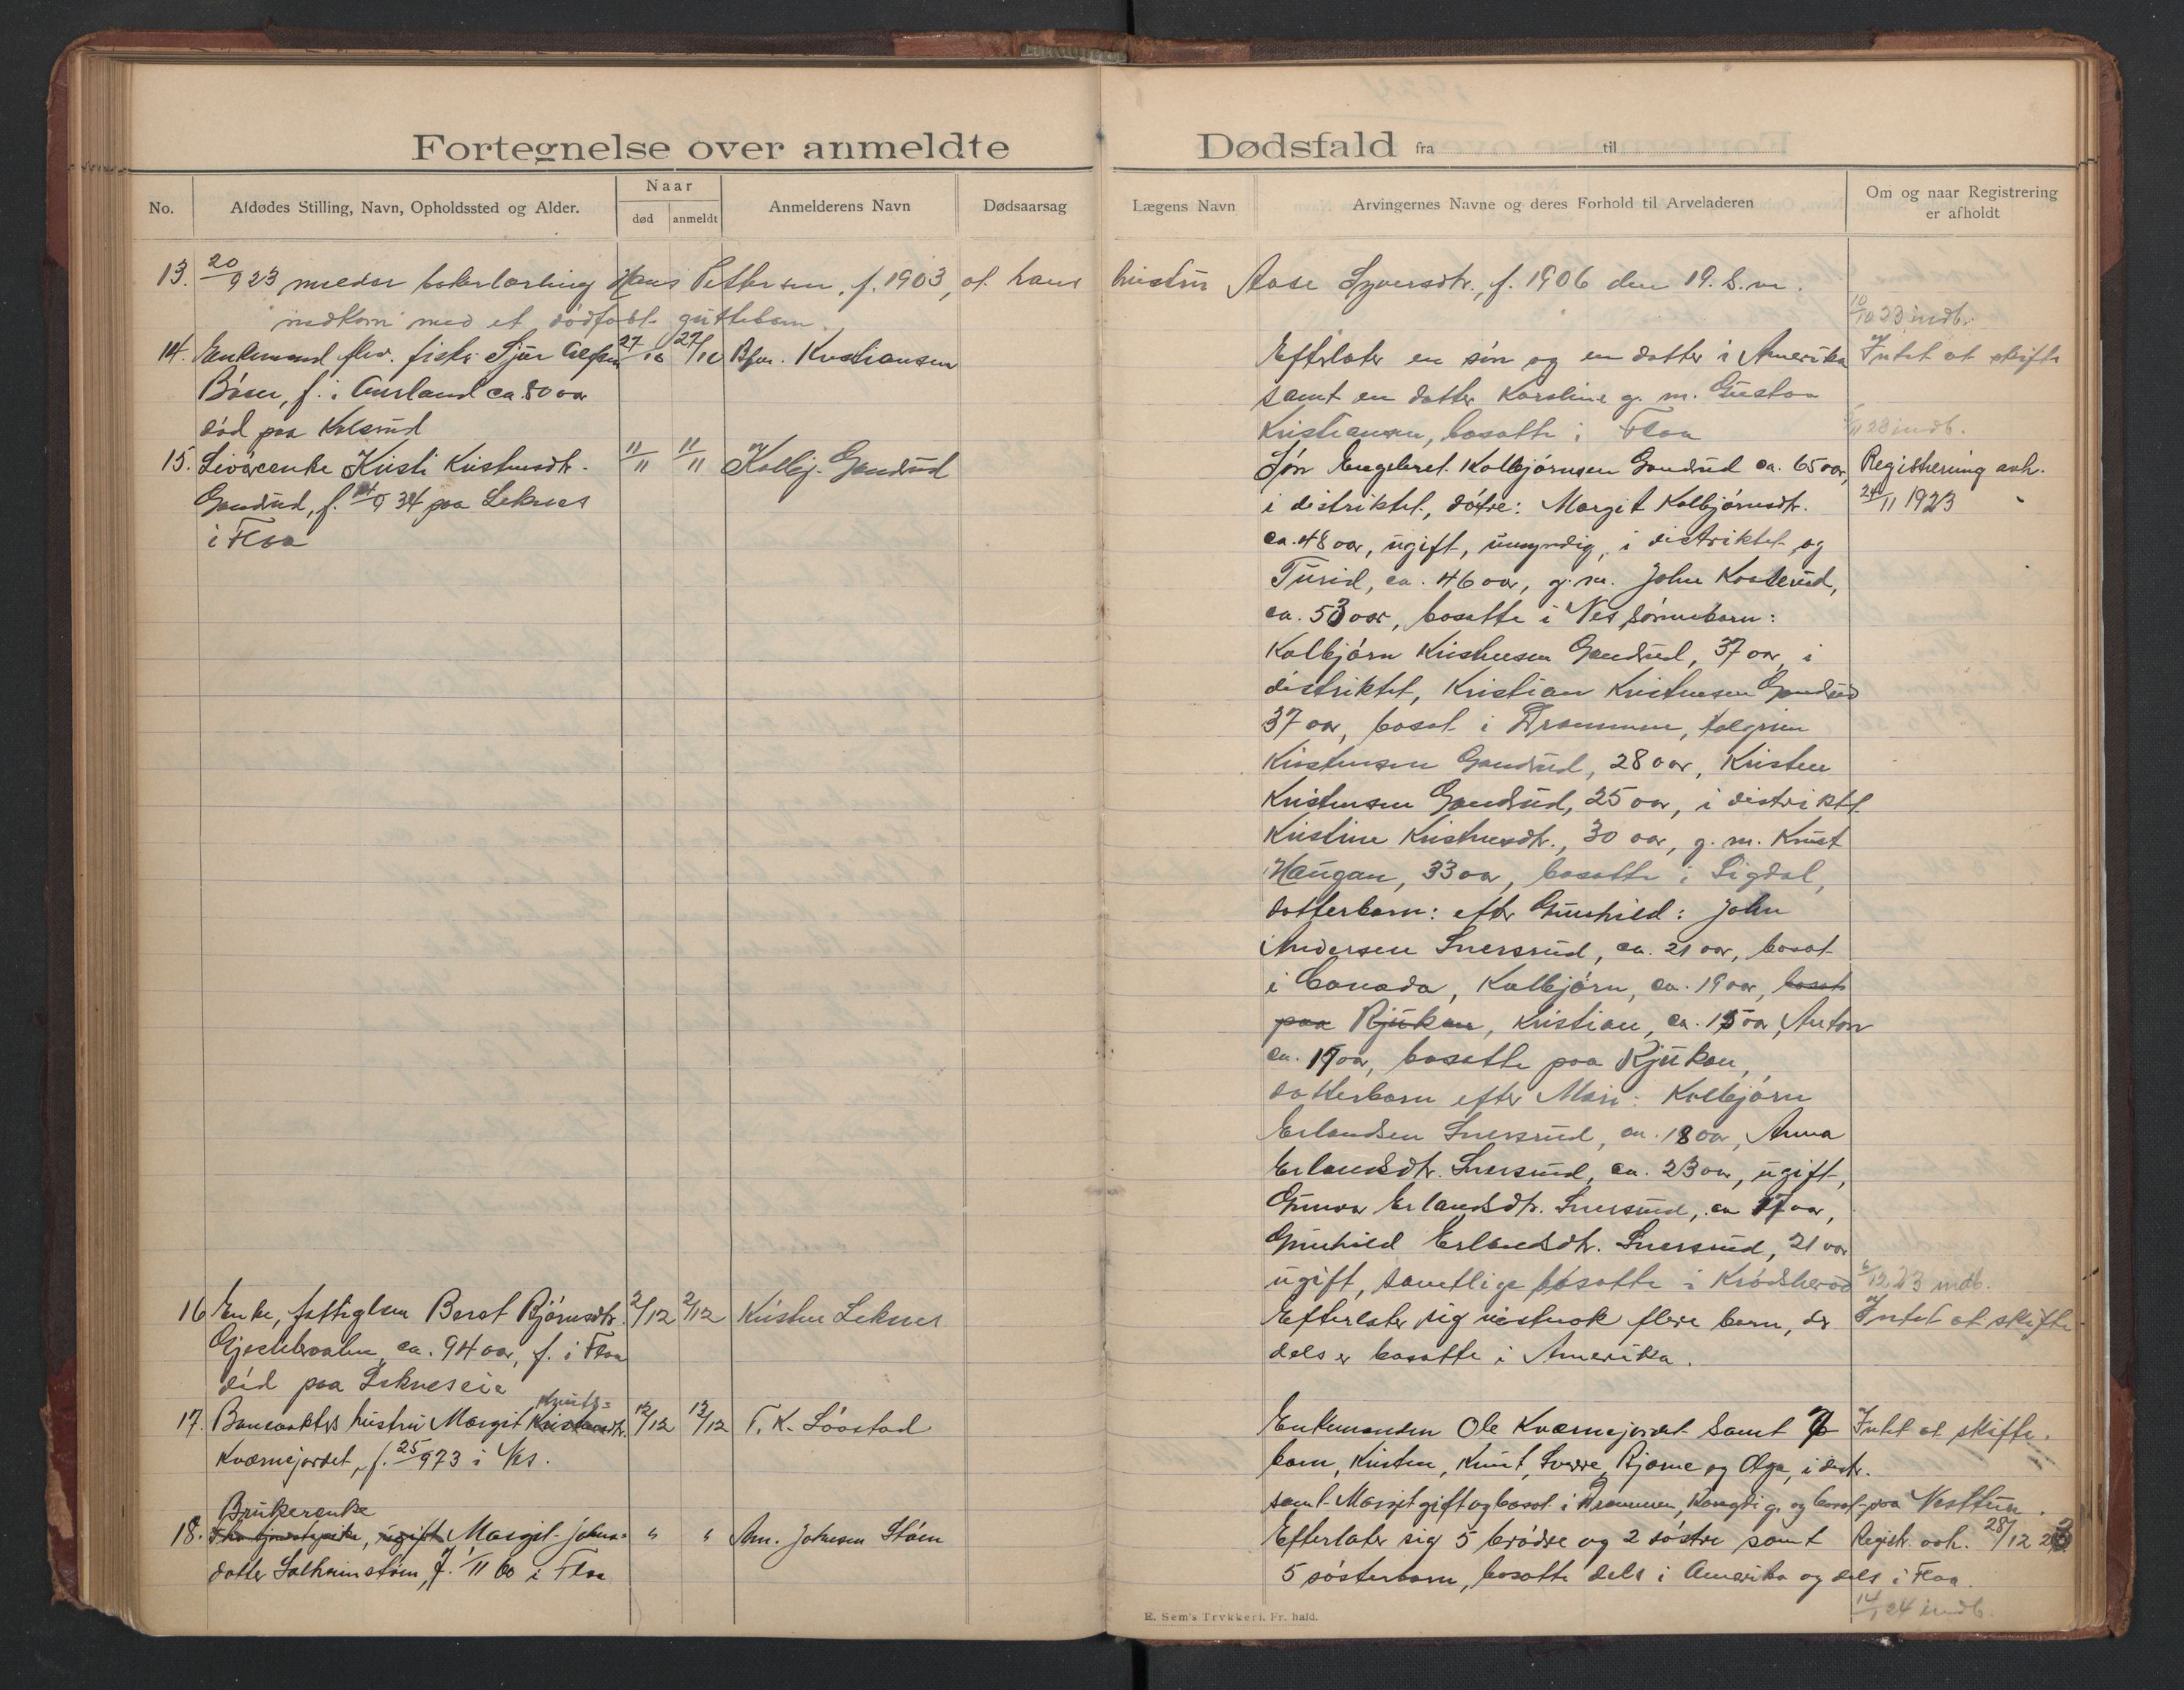 Fortegnelse over anmeldte Dødsfald fra til
No.
Afdødes Stilling, Navn, Opholdssted og Alder.
Naar
død
anmeldt
Anmelderens Navn
Dødsaarsag
Lægens Navn
Arvingernes Navne og deres Forhold til Arveladeren
Om og naar Registrering
er afholdt
13. 20/9 23 melder bakerlærling Hans Pettersen, f. 1903, at hans hustru Aase Syversdtr., f. 1906 den 19. s.m.
nedkom med et dødfødt guttebarn.
10/10 23 indb.
14. Enkemand, fhv. fisker Sjur
27/10 27/10 Kristiansen
Efterlater en søn og en datter i Amerika
Intet at skifte
f. i Aurland ca. 80 aar
samt en datter Karoline g. m. Gustav
død paa Kolsrud
Kristiansen, bosatte i Flaa
23 indb.
15. Livørenke Kristi Kristensdtr.
11/11 11/11 Kolbj. Gandrud
Søn Engebret Kolbjørnsen Gandrud ca. 65 aar,
Registrering avh.
Gandrud, f. 9 34 paa Leknes
i distriktet, døtre: Margit Kolbjørnsdtr.
24/11 1923
i Flaa
ca. 48 aar, ugift, umyndig, i distriktet og
Turid, ca. 46 aar, g. m. John
ca. 53 aar, bosatte i Nes, sønnebarn:
Kolbjørn Kristensen Gandrud, 37 aar, i
distriktet, Kristian Kristensen Gandrud
37 aar, bosat i Drammen, Halgrim
Kristensen Gandrud, 28 aar, Kristen
Kristensen Gandrud, 25 aar, i distriktet
Kristine Kristensdtr., 30 aar, g. m. Knut
Haugan, 33 aar, bosatte i Sigdal,
datterbarn: efter Gunhild: John
Andersen Snersrud, ca. 21 aar, bosat
i Canada, Kolbjørn, ca. 19 aar, bosat
paa Rjukan, Kristian, ca. 15 aar, Anton
ca. 17 aar, bosatte paa Rjukan,
datterbarn efter Mari: Kolbjørn
Erlandsen Snersrud, ca. 18 aar, Anna
Erlandsdtr. Snersrud, ca. 23 aar, ugift,
Gunvor Erlandsdtr. Snersrud, ca 17 aar,
Gunhild Erlandsdtr. Snersrud, 21 aar
ugift, samtlige bosatte i Krødsherad
/12 23 indb.
16 Enke, fattiglem Beret Bjørnsdtr.
2/12 2/12 Kristen Leknes
Efterlater sig vistnok flere barn, der
Intet at skifte
ca. 94 aar, f. i Flaa
dels er bosatte i Amerika.
død paa Lekneseie
Knuts=
17. Banevokters hustru Margit Kristensdtr.
12/12 12/12 T. K. Sørstad
Enkemanden Ole Kværnejordet samt 7
Intet at skifte.
Kværnejordet, f. 25/9 73 i Nes.
barn, Kristen, Knut, Sverre, Bjarne og Olga, i distr.
samt Margit gift og bosat i Drammen, og bosat paa
Brukerenke
18. ugift Margit Johns=
" " Am. Johnsen Støen
Efterlater sig 5 brødre og 2 søstre samt
Registr. avh. 28/12 23
datter i Flaa
5 søsterbarn, bosatte dels i Amerika og dels i Flaa.
14/1 24 indb
E. Sem's Trykkeri, Fr.hald.